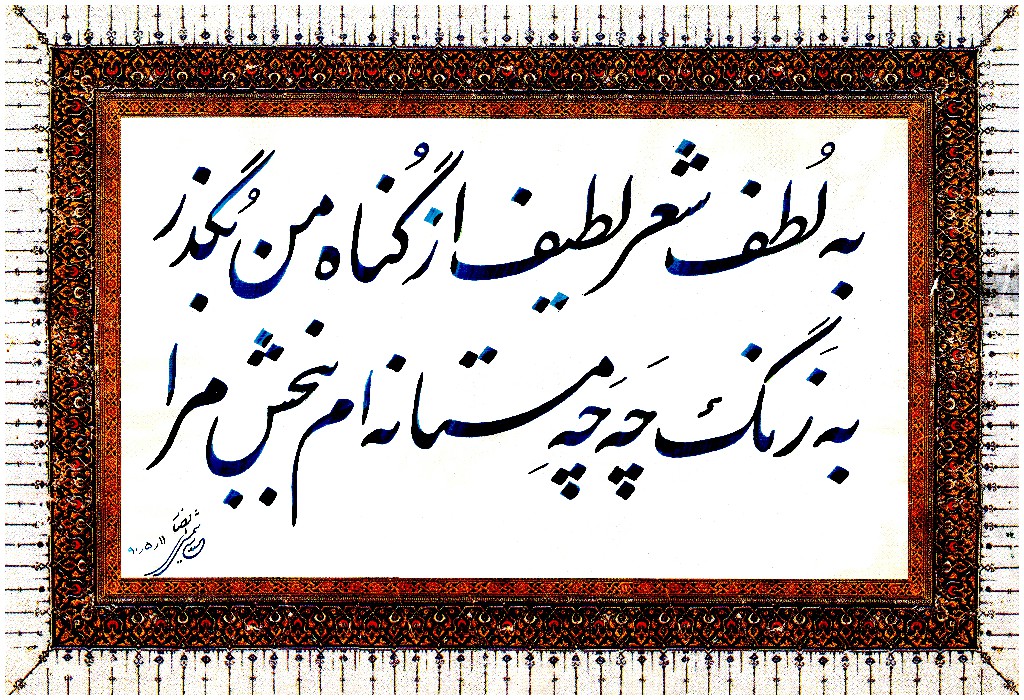 به لُطف شعر لطیف از گُناه من بُگذر
به زَنگ چَه چَهِ مستانه ام ببخش مرا
۹۰/۵/۱۱